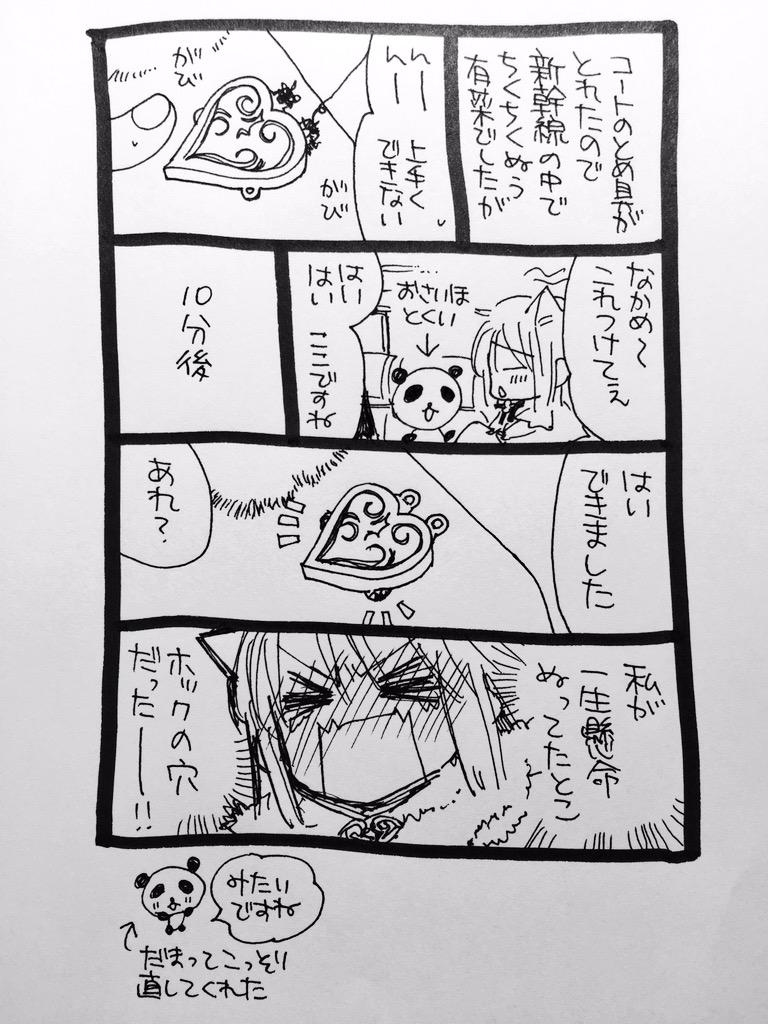 コートのとめ具が
とれたので
新幹線の中で
ちくちくぬう
有菜でしたが
んー
んー
上手く
できない
がび
がび
なかめ〜
これつけてぇ
おさいほ
とくい
はい
はい
ここですね
10分後
はい
できました
あれ?
私が
一生懸命
ぬってたとこ
ホックの穴
だったー!!
みたい
ですね
だまってこっそり
直してくれた